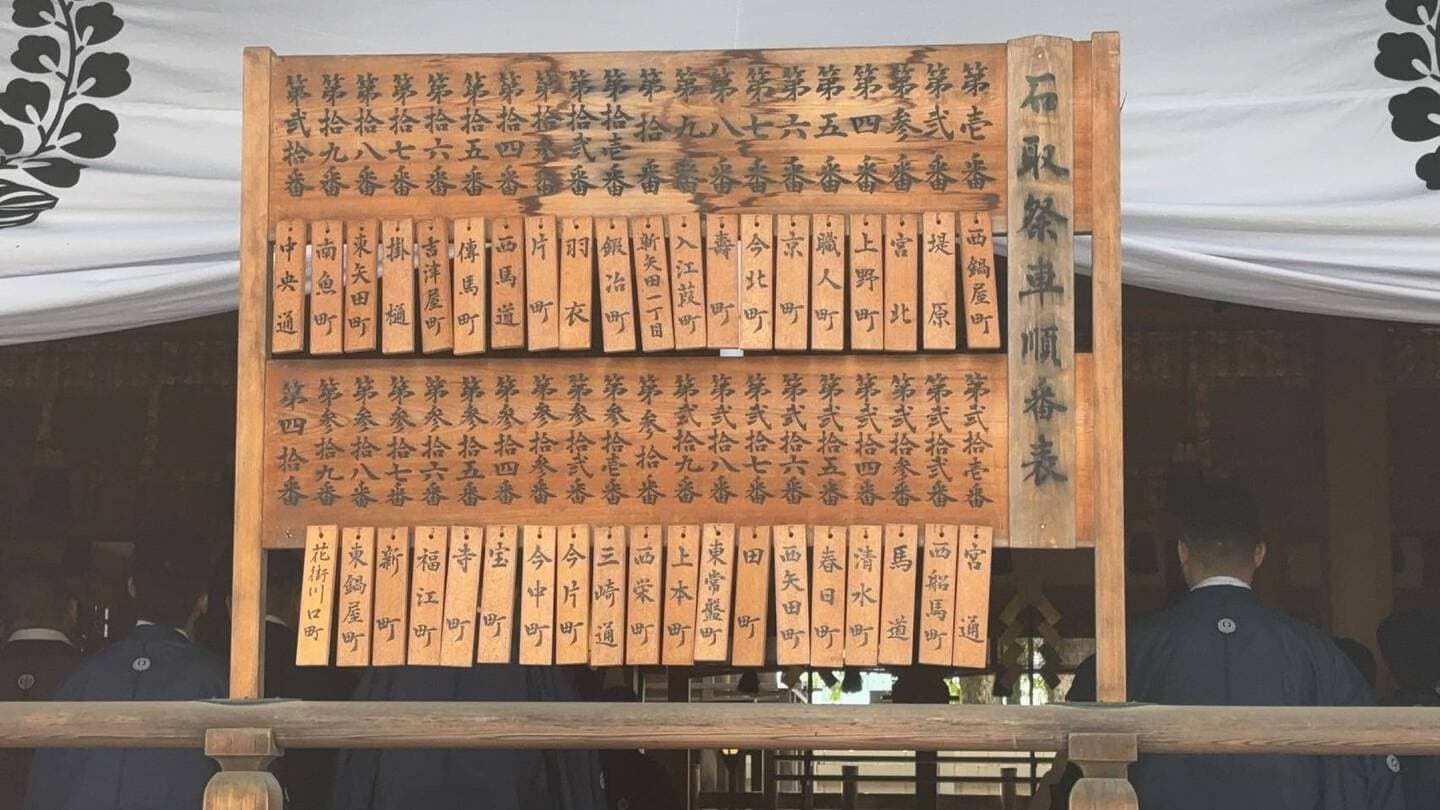 石取祭車順番表
第壱番
第弐番
第参番
第四番
第五番
第六番
第七番
第八番
第九番
第拾番
第拾壱番
第拾弐番
第拾参番
第拾四番
第拾五番
第拾六番
第拾七番
第拾八番
第拾九番
第弐拾番
西鍋屋町
堤原
宮北
上野町
職人町
京町
今北町
壽町
入江葭町
新矢田一丁目
鍛冶町
羽衣
片町
西馬道
傳馬町
吉津屋町
掛樋
東矢田町
南魚町
中央通
第弐拾壱番
第弐拾弐番
第弐拾参番
第弐拾四番
第弐拾五番
第弐拾六番
第弐拾七番
第弐拾八番
第弐拾九番
第参拾番
第参拾壱番
第参拾弐番
第参拾参番
第参拾四番
第参拾五番
第参拾六番
第参拾七番
第参拾八番
第参拾九番
第四拾番
宮通
西船馬町
馬道
清水町
春日町
西矢田町
田町
東常盤町
上本町
西栄町
三崎通
今片町
今中町
宝町
寺町
福江町
新町
東鍋屋町
花街川口町